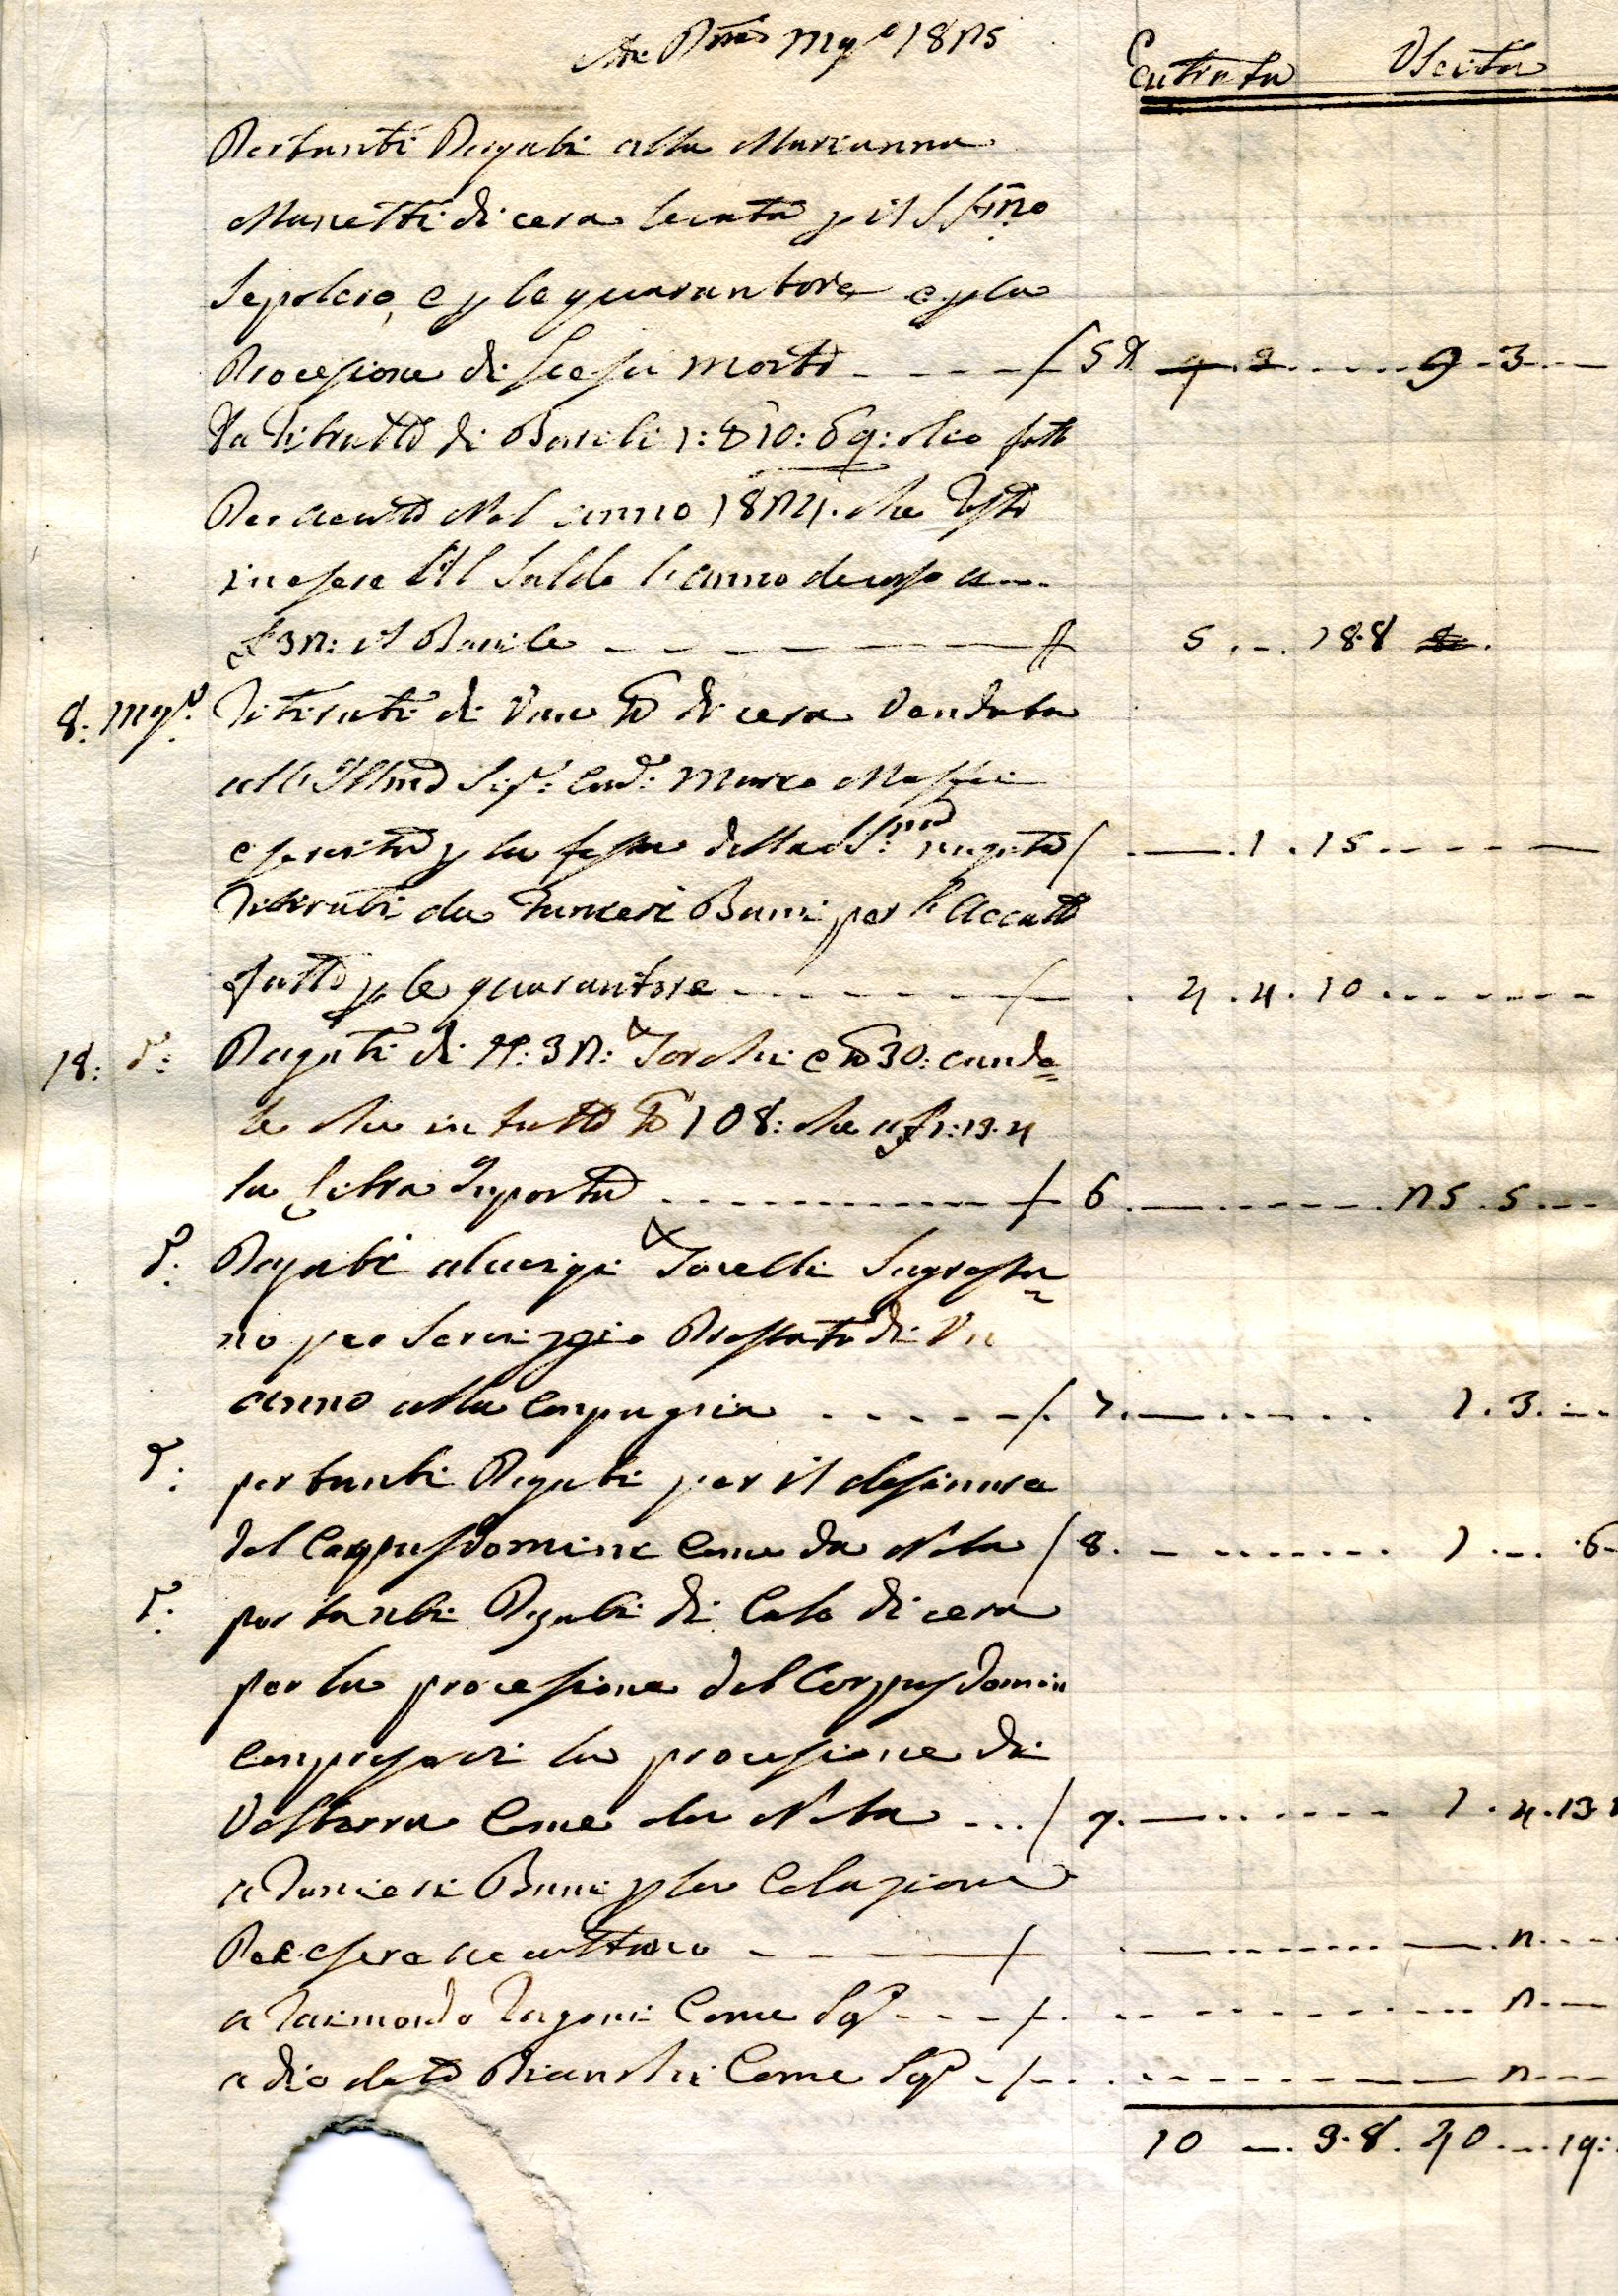 Mgo 1825
Entrata Uscita
Per tanti Pagati alla Marianna
Manetti di cera levata p il SSmo
Sepolcro, e p le quarantore e p la
Procesione di Giesu morto - - - - / 5 9 . 3
Ritratto di Barili 1: 10: 69: olio fatto
Per Acatto Nel anno 1824. che
in esere il Saldo l'anno decorso a
£ 32: il Barile 5 . - . 18.8
8: Mgo. Ritirati di Una di cera Venduta
all Illmo Sigr: Cavr: Marco Maffei
e servita p la festa della SSma
Ritirati da Ranieri Buni per l'Accatto / . 1 . 15
fatto p le quarantore / 4 . 10
18: do: Pagati di 32: Torchi e 30: cande=
le che in tutto 108: che a £ 1:13.4
la Libra Inporta / 6 25 . 5
do: Pagati aluigi Torelli Sagresta=
no per Servizzio Prestato di Un
anno alla Conpagnia / 7. 1 . 3.
do: per tanti Pagati per il desinare
del Corpusdomine Come da Nota / 8. 1 . 6
do: per tanti Pagati di Calo di cera
per la procesione del Corpusdomin
Conpresovi la procesione di
Volterra Come da Nota / 9. 1 . 4.13.
a Ranieri Buni p la Colazione
Per esere acattato / 2
a Raimondo Ragoni Come Sopa / 2
a diodato Bianchi Come Sopa / 2
10 3.8. 40 19: